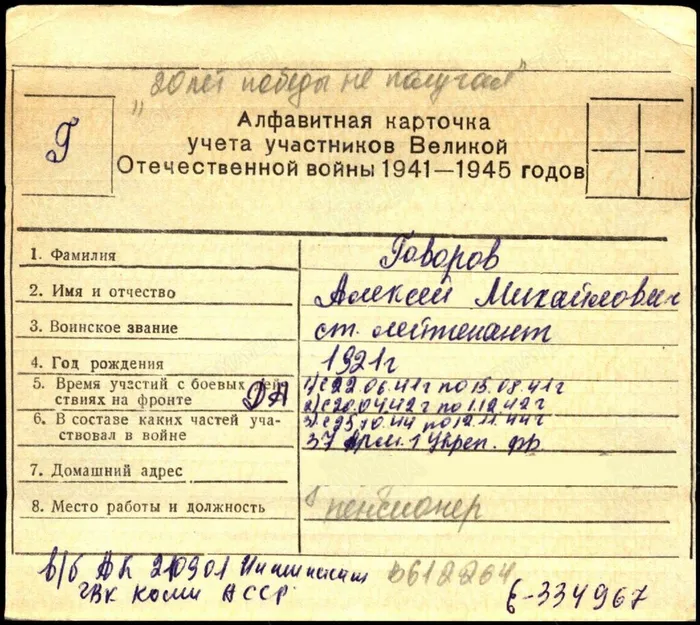 "20 лет победы не получал"
Г
Алфавитная карточка
учета участников Великой
Отечественной войны 1941—1945 годов
1. Фамилия Говоров
2. Имя и отчество Алексей Михайлович
3. Воинское звание ст. лейтенант
4. Год рождения 1921г
5. Время участий с боевых дей-
ствиях на фронте 1) с 22.06.41г по 15.08.41г
2) с 20.04.42г по 1.12.42г
6. В составе каких частей уча- 3) с 25.10.44 по 12.11.44г
ствовал в войне 37 арм. 1 Укреп. фр
7. Домашний адрес
8. Место работы и должность пенсионер
в/б АК 210901
ГВК Коми АССР
Б-334967